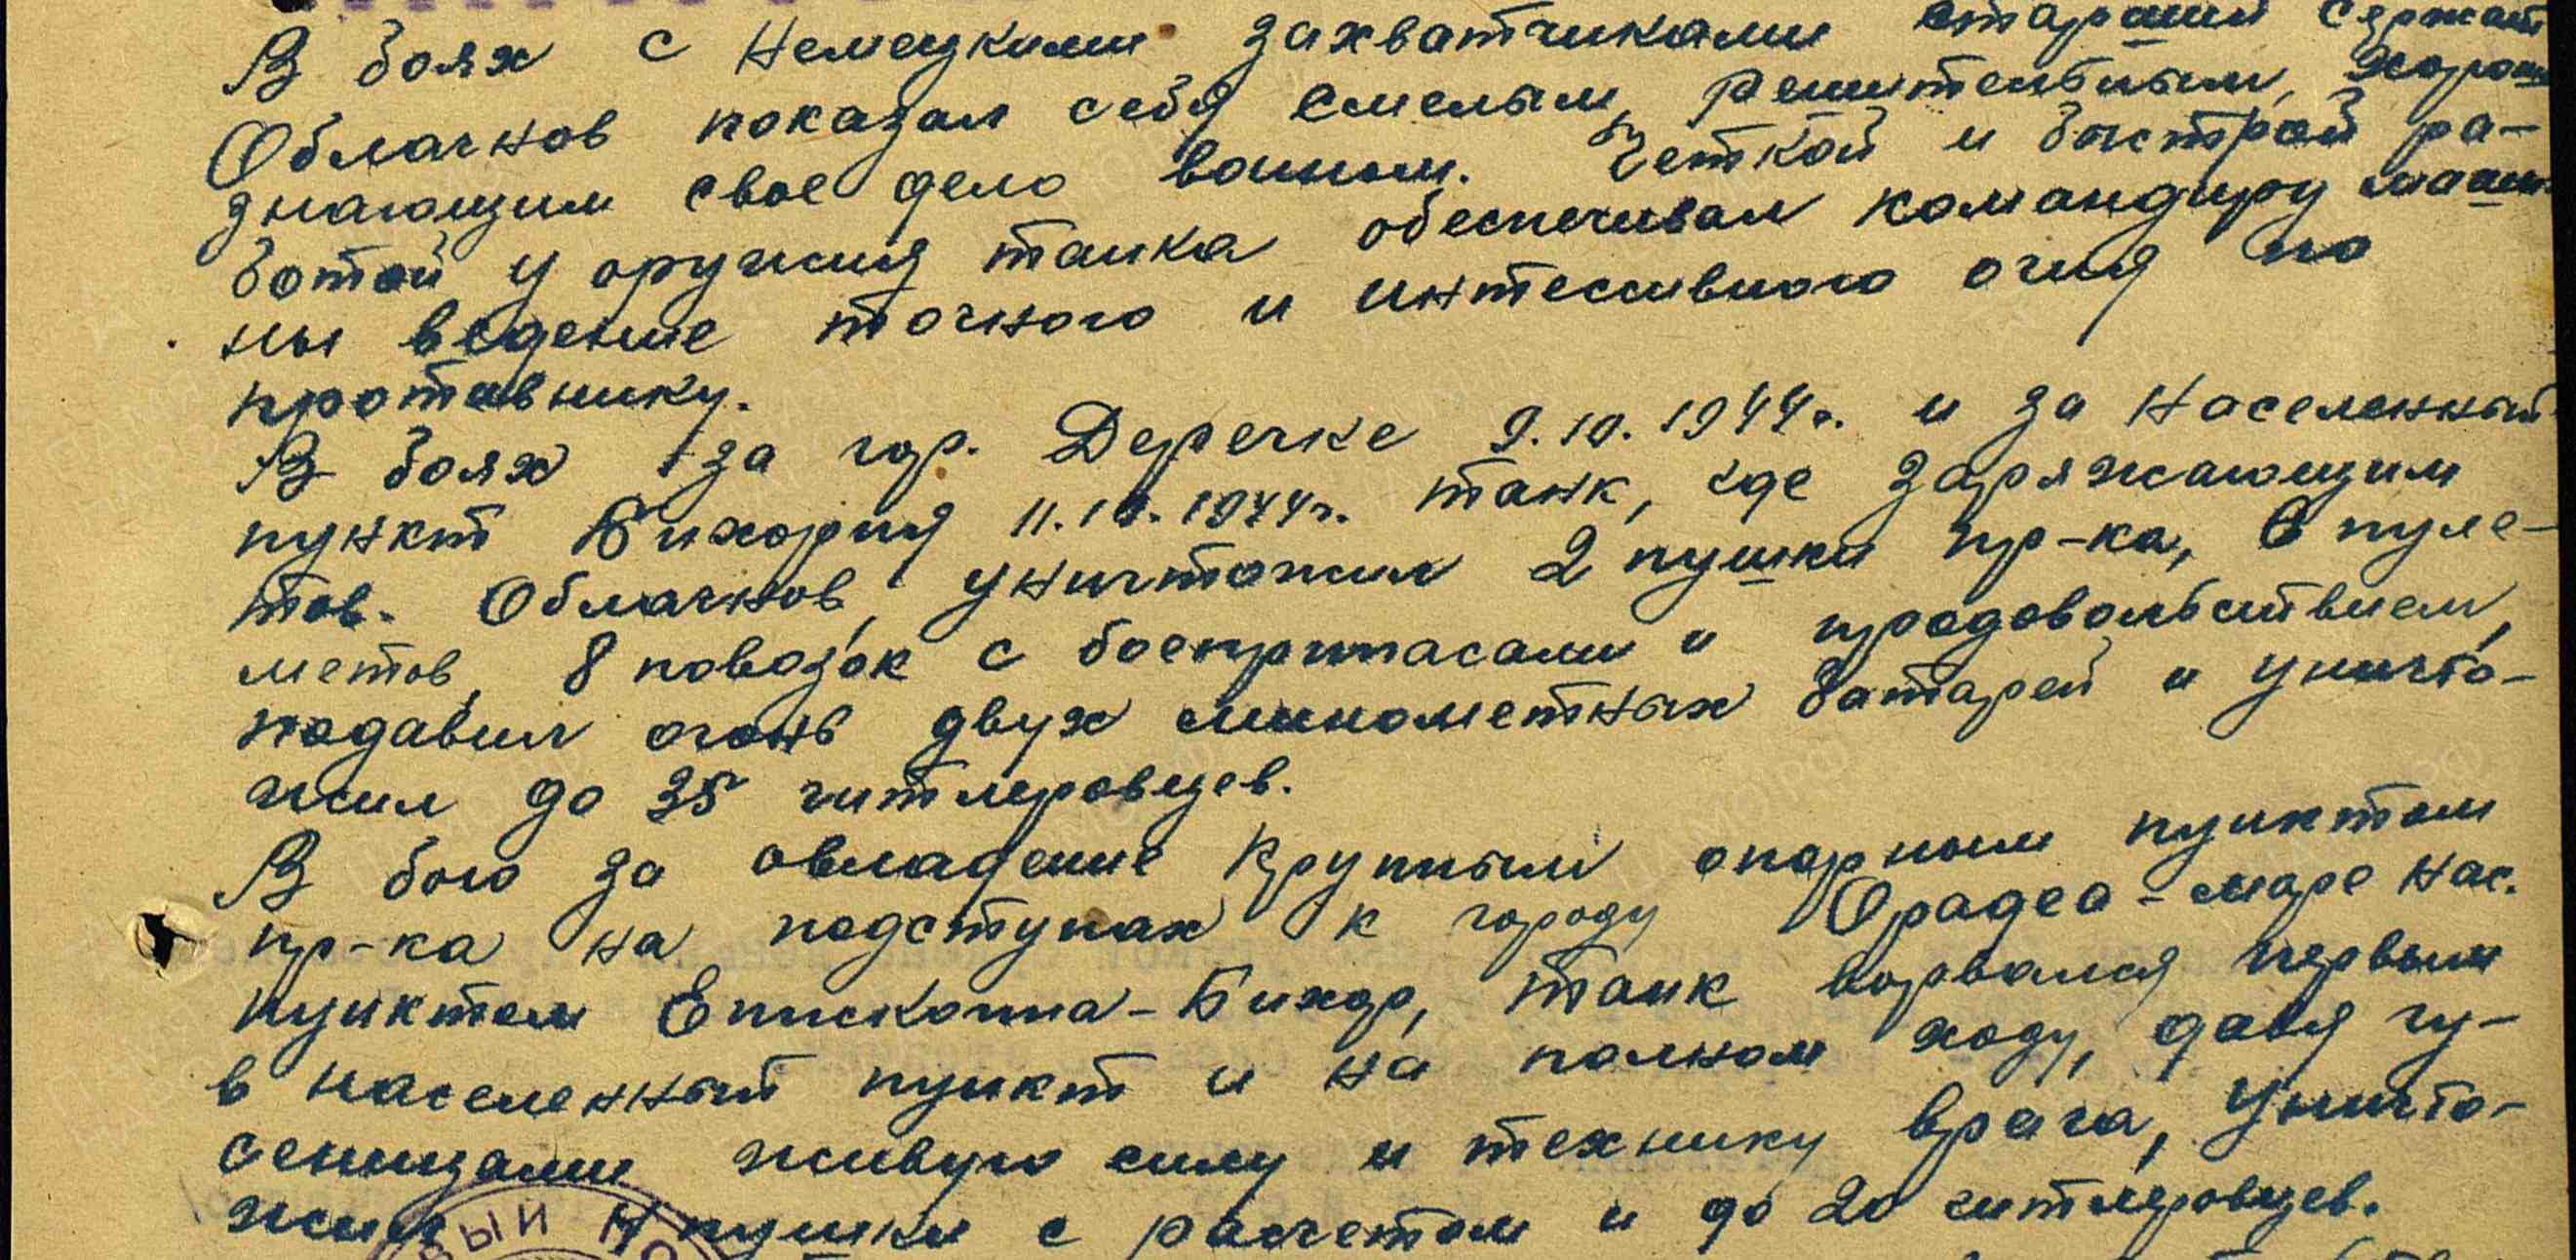 В боях с немецкими захватчиками старший сержант
Облачнов показал себя смелым, решительным, хорошо
знающим свое дело воином. Четкой и быстрой ра-
ботой у оружия танка обеспечивал командиру маши-
ны ведение точного и интесивного огня по
противнику.
В боях за гор. Деречке 9.10.1944г. и за населенный
пункт Бихория 11.10.1944г. танк, где заряжающим
тов. Облачнов, уничтожил 2 пушки пр-ка, 6 пуле-
метов, 8 повозок с боеприпасами и продовольствием,
подавил огонь двух минометных батарей и уничто-
жил до 35 гитлеровцев.
В бою за овладение крупным опорным пунктом
пр-ка на подступах к городу Орадеа-маре нас.
пунктом Епископиа-Бихор, танк ворвался первым
в населенный пункт и на полном ходу, давя гу-
сеницами живую силу и технику врага, уничто-
жил 4 пушки с расчетом и до 20 гитлеровцев.